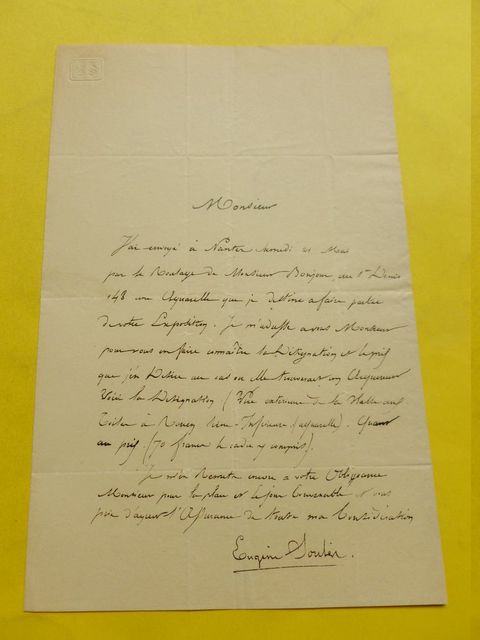 Monsieur
J'ai envoyé à Nantes samedi 21 Mai
par le Roulage de Monsieur Bonjour, rue St Denis
148 une Aquarelle que je destine a faire partie
de votre Exposition. Je m'adresse a vous Monsieur
pour vous en faire connaître la Désignation et le prix
que j'en désire au cas ou elle trouverait un Acquereur
Voici la Désignation (Vue exterieure de la Halle aux
Toiles à Rouen Seine-Inférieure (aquarelle). Quant
au prix. (70 francs le cadre y compris).
Je m'en Remets encore a votre Obligeance
Monsieur pour la place et le jour Convenable et vous
prie d'agreer l'Assurance de toute ma Considération
Eugène Soulès.